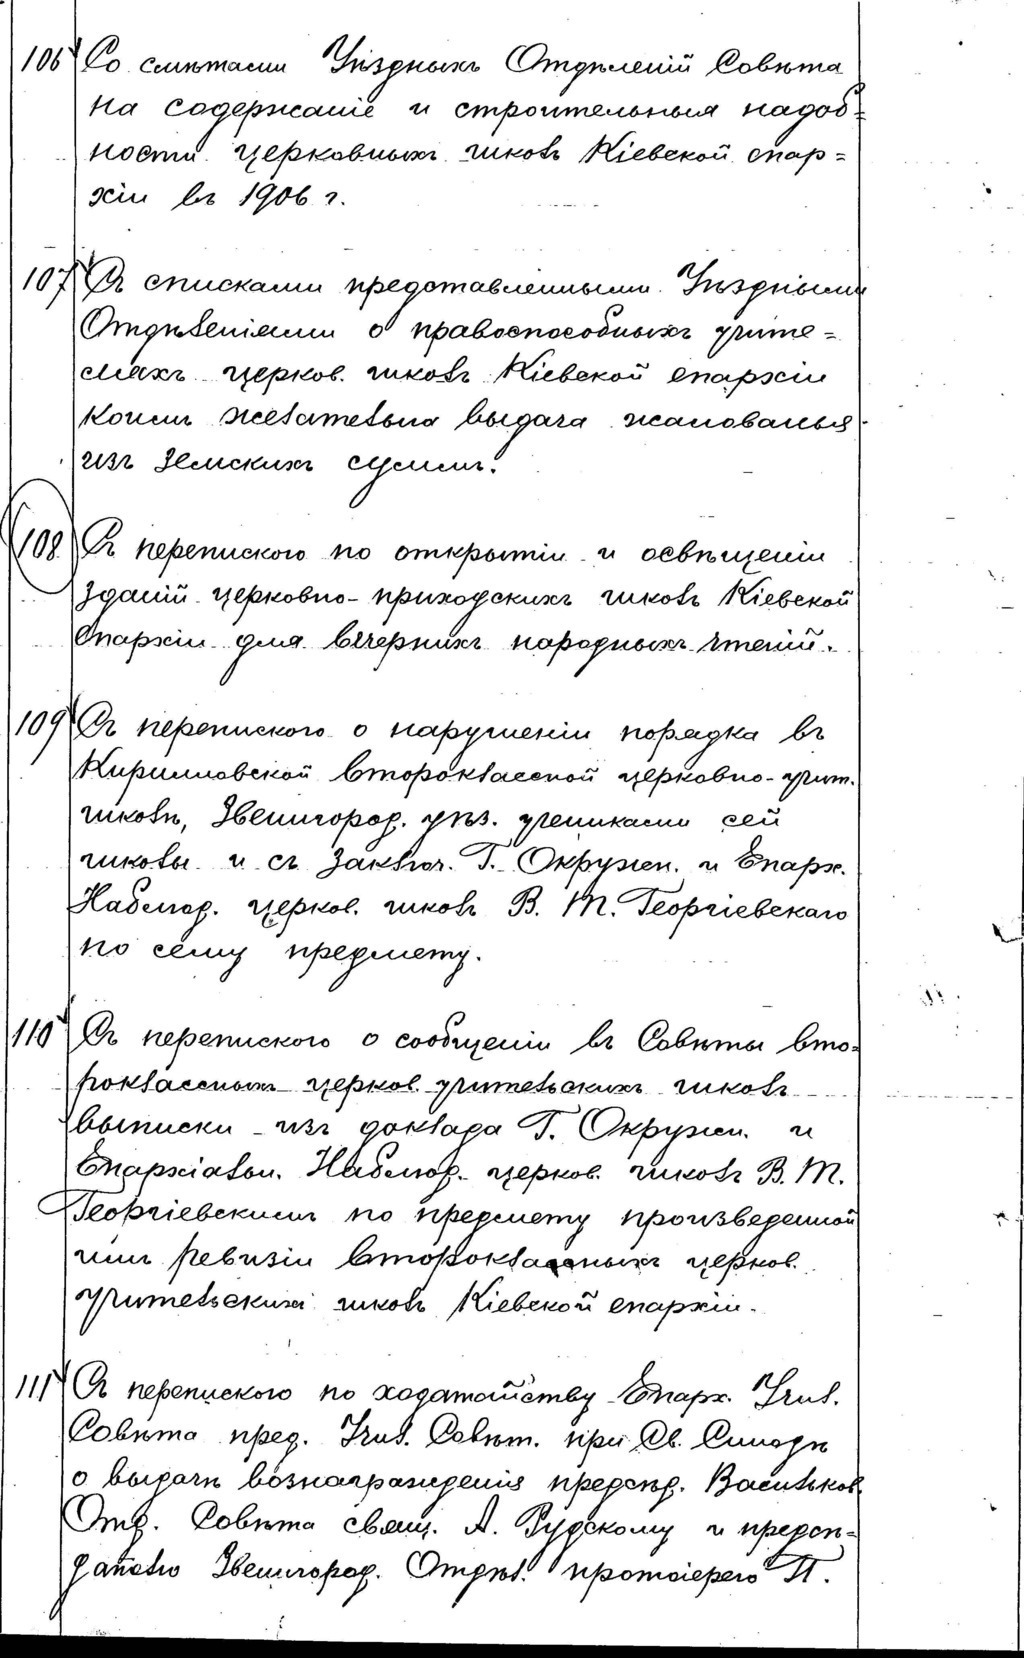 106 Со смѣтами Уѣздныхъ Отдѣленій Совѣта
на содержаніе и строительныя надоб=
ности церковныхъ школъ Кіевской епар=
хіи въ 1906 г.
107 Съ списками представленными Уѣздными
Отдѣленіями о правоспособныхъ учите=
ляхъ церков. школъ Кіевской епархіи
коимъ желательна выдача жалованья
изъ Земскихъ суммъ.
108 Съ перепискою по открытіи и освѣщеніи
зданій церковно-приходскихъ школъ Кіевской
Епархіи для вечернихъ народныхъ чтеній.
109 Съ перепискою о нарушеніи порядка въ
Кирилловской второклассной церковно-учит.
школѣ, Звенигород. уѣз. учениками сей
школы и съ заключ. Г. Окружн. и Епарх.
Наблюд. церков. школъ В. М. Георгіевскаго
по сему предмету.
110 Съ перепискою о сообщеніи въ Совѣты вто=
роклассныхъ церков. учительскихъ школъ
выписки изъ доклада Г. Окружн. и
Епархіальн. Наблюд. церков. школъ В. М.
Георгіевскимъ по предмету произведенной
имъ ревизіи второклассныхъ церков.
учительскихъ школъ Кіевской епархіи.
111 Съ перепискою по ходатайству Епарх. Учил.
Совѣта пред. Учил. Совѣт. при Св. Синодѣ
о выдачѣ вознагражденія предсѣд. Васильков.
Отд. Совѣта свящ. А. Рудскому и предсѣ=
дателю Звенигород. Отдѣл. протоіерею П.